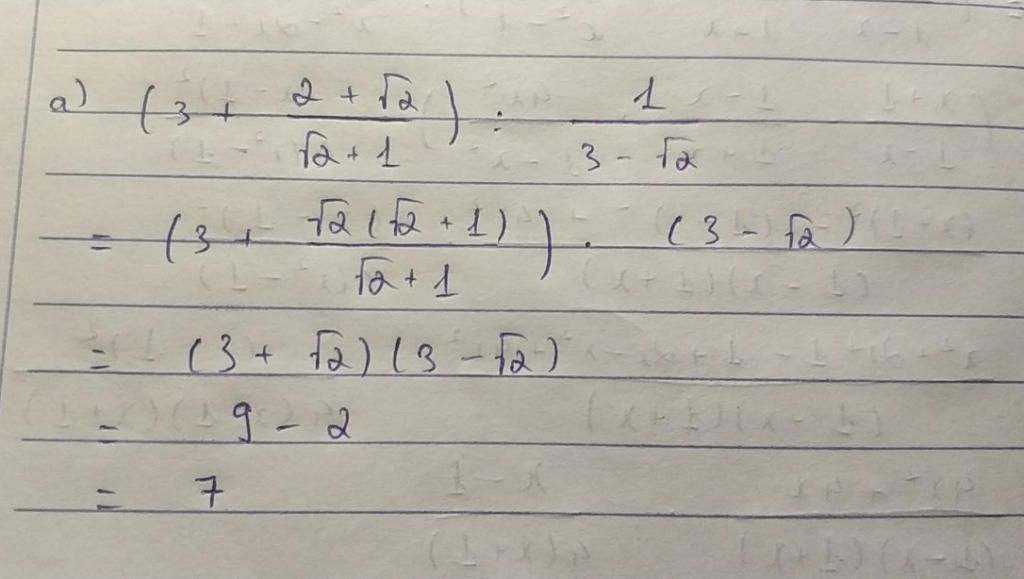 a) (3 + (2 + √2)/(√2 + 1)) : 1/(3 - √2)
= (3 + √2(√2 + 1)/(√2 + 1)) . (3 - √2)
= (3 + √2)(3 - √2)
= 9 - 2
= 7